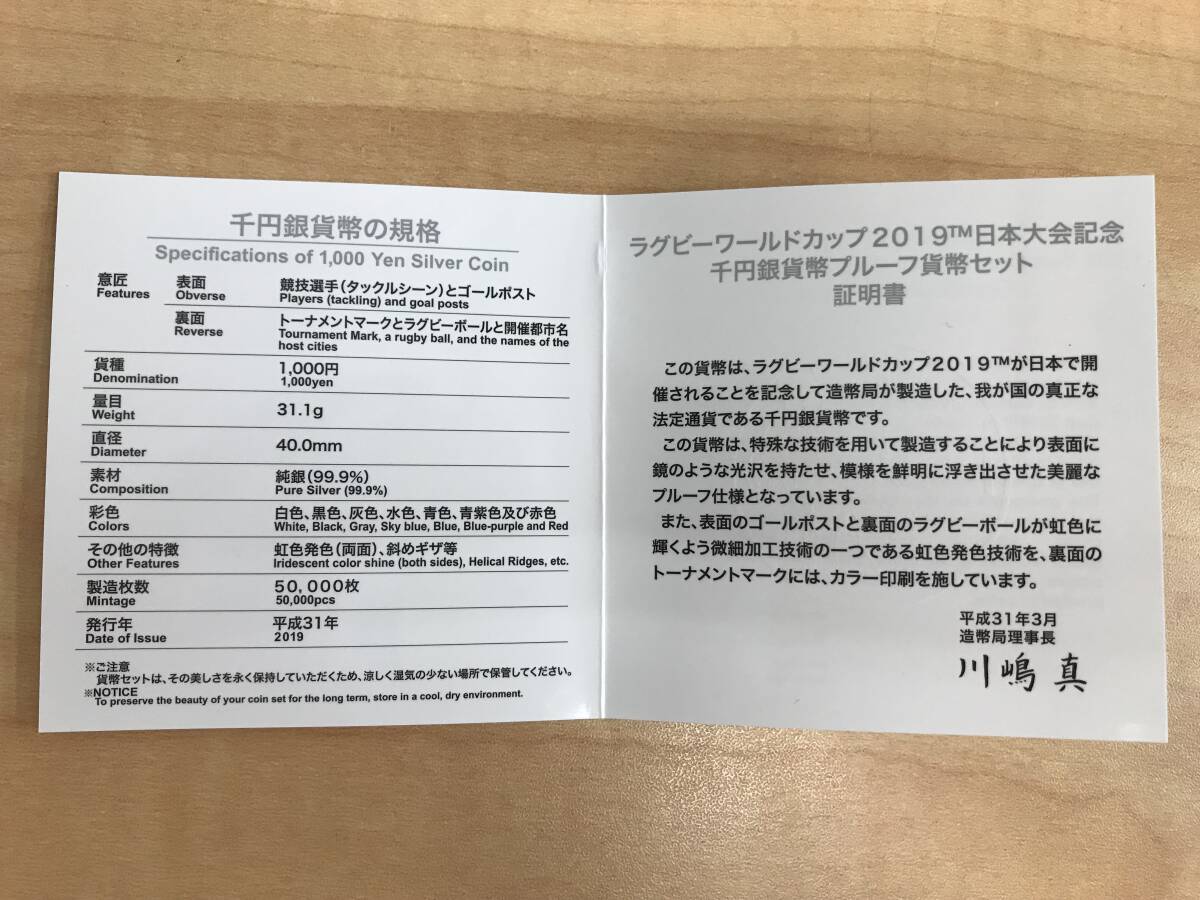 千円銀貨幣の規格
Specifications of 1,000 Yen Silver Coin
意匠 表面 競技選手（タックルシーン）とゴールポスト
Features Obverse Players (tackling) and goal posts
裏面 トーナメントマークとラグビーボールと開催都市名
Reverse Tournament Mark, a rugby ball, and the names of the
host cities
貨種 1,000円
Denomination 1,000yen
量目 31.1g
Weight
直径 40.0mm
Diameter
素材 純銀（99.9%）
Composition Pure Silver (99.9%)
彩色 白色、黒色、灰色、水色、青色、青紫色及び赤色
Colors White, Black, Gray, Sky blue, Blue, Blue-purple and Red
その他の特徴 虹色発色（両面）、斜めギザ等
Other Features Iridescent color shine (both sides), Helical Ridges, etc.
製造枚数 50,000枚
Mintage 50,000pcs
発行年 平成31年
Date of Issue 2019
※ご注意
貨幣セットは、その美しさを永く保持していただくため、涼しく湿気の少ない場所で保管してください。
※NOTICE
To preserve the beauty of your coin set for the long term, store in a cool, dry environment.
ラグビーワールドカップ2019™日本大会記念
千円銀貨幣プルーフ貨幣セット
証明書
この貨幣は、ラグビーワールドカップ2019™が日本で開
催されることを記念して造幣局が製造した、我が国の真正な
法定通貨である千円銀貨幣です。
この貨幣は、特殊な技術を用いて製造することにより表面に
鏡のような光沢を持たせ、模様を鮮明に浮き出させた美麗な
プルーフ仕様となっています。
また、表面のゴールポストと裏面のラグビーボールが虹色に
輝くよう微細加工技術の一つである虹色発色技術を、裏面の
トーナメントマークには、カラー印刷を施しています。
平成31年3月
造幣局理事長
川嶋 真